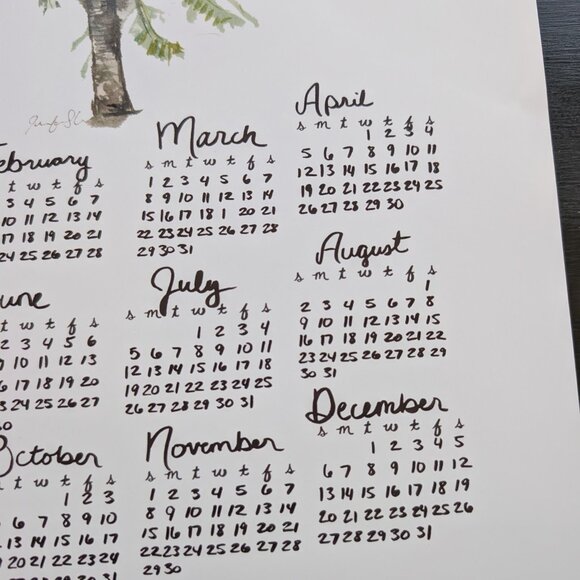 ebruary
t w t f s
3 4 5 6 7
10 11 12 13 14
17 18 19 20 21
24 25 26 27 28
March
s m t w t f s
1 2 3 4 5 6 7
8 9 10 11 12 13 14
15 16 17 18 1 20 21
22 23 24 25 26 27 28
29 30 31
April
s m t w t f s
1 2 3 4
5 6 7 8 9 10 11
12 13 14 15 16 17 18
19 20 21 22 23 24 25
26 27 28 29 30
une
t w t f s
2 3 4 5 6
10 11 12 13
16 17 18 19 20
23 24 25 26 27
July
s m t w t f s
1 2 3 4
5 6 7 8 9 10 11
12 13 14 15 16 17 18
19 20 21 22 23 24 25
26 27 28 29 30 31
August
s m t w t f s
1
2 3 4 5 6 7 8
9 10 11 12 13 14 15
16 17 18 19 20 21 22
23 24 25 26 27 28 29
30 31
October
t w t f s
1 2 3
6 7 8 9 10
13 14 15 16 17
20 21 22 23 24
28 29 30 31
November
s m t w t f s
1 2 3 4 5 6 7
8 9 10 11 12 13 14
15 16 17 18 19 20 21
22 23 24 25 26 27 28
29 30
December
s m t w t f s
1 2 3 4 5
6 7 8 9 10 11 12
13 14 15 16 17 18 19
20 21 22 23 24 25 26
27 28 29 30 31